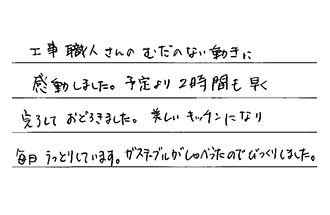 工事職人さんのむだのない動きに
感動しました。予定より2時間も早く
完了しておどろきました。美しいキッチンになり
毎日うっとりしています。ガステーブルがしゃべったのでびっくりしました。